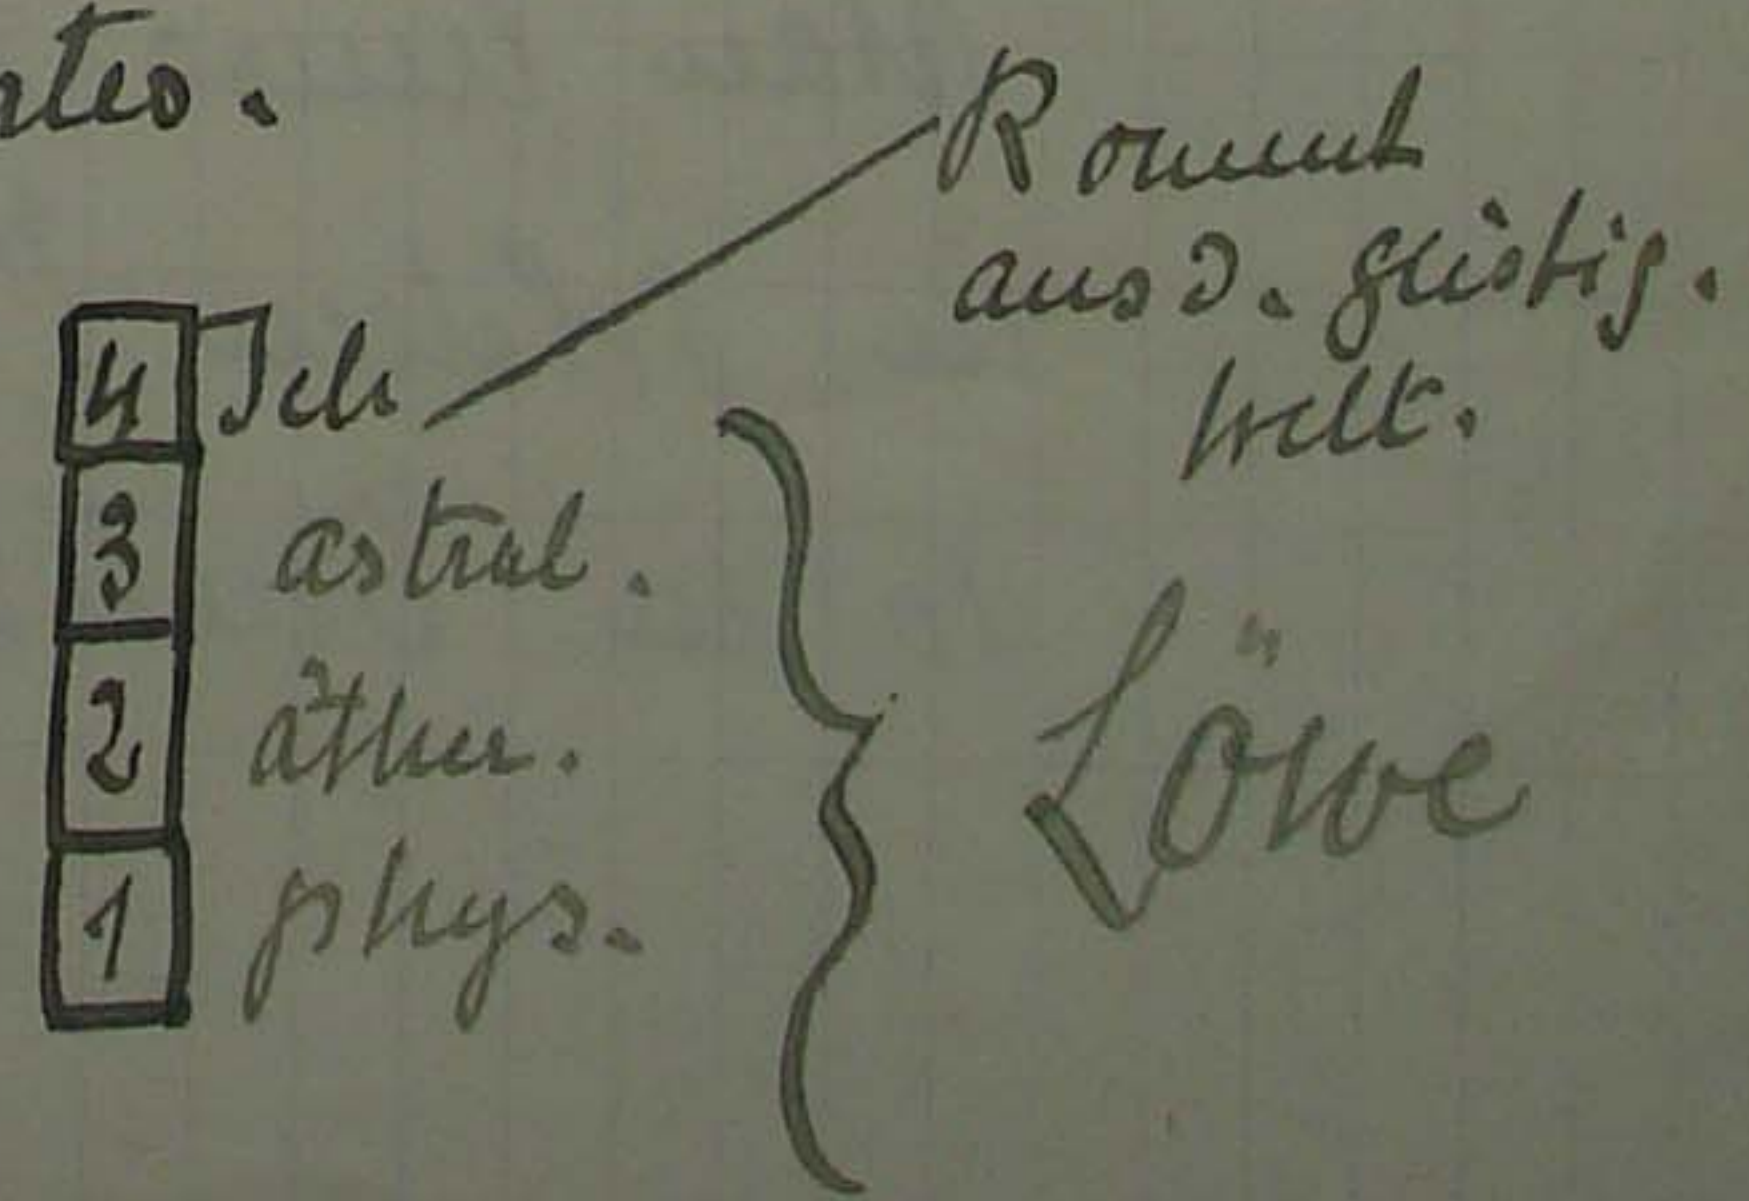 Kommt
aus d. geistig.
Welt.
4 Ich
3 astral.
2 äther.
1 phys.
Löwe